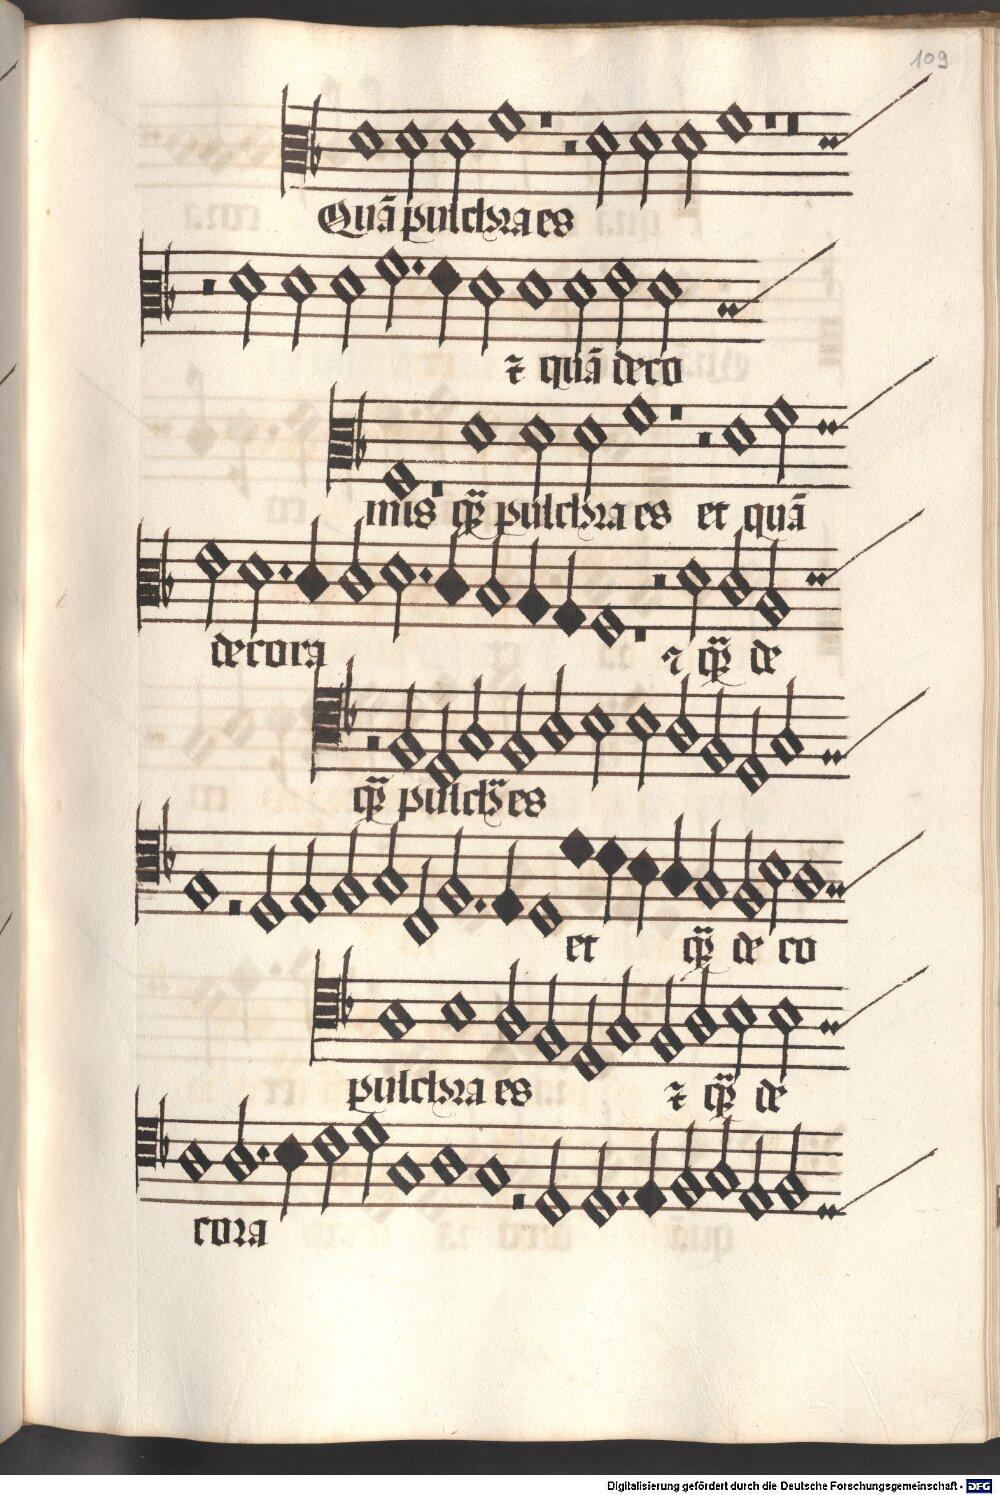 109
Quā pulchra es
⁊ quā deco
mis qȝ pulchra es et quā
decora ⁊ qȝ de
qȝ pulchȝ es
et qȝ de co
pulchra es ⁊ qȝ de
cora
Digitalisierung gefördert durch die Deutsche Forschungsgemeinschaft - DFG